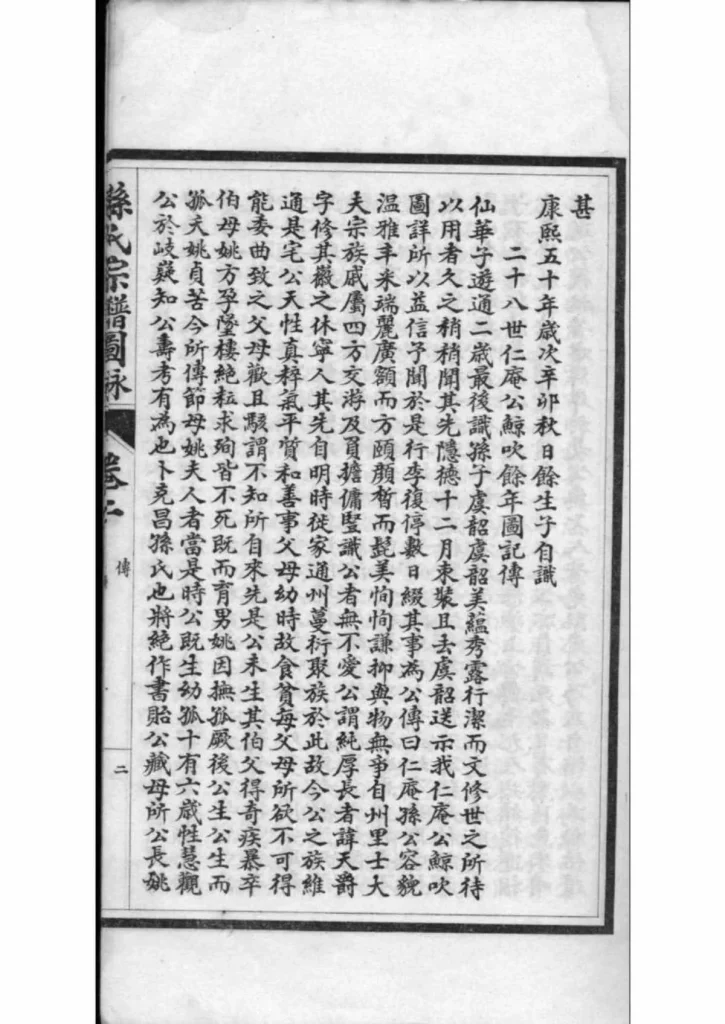 甚
康熙五十年歲次辛卯秋日餘生子自識
二十八世仁庵公鯨吹餘年圖記傳
仙華子遊通二歲最後識孫子虞韶虞韶美蘊秀露行潔而文修世之所待
以用者久之稍稍聞其先隱德十二月束裝且去虞韶送示我仁庵公鯨吹
圖詳所以益信予聞於是行李復停數日綴其事為公傳曰仁庵孫公容貌
溫雅丰采瑞麗廣額而方頤顏晳而髭美恂恂謙抑與物無爭自州里士大
夫宗族戚屬四方交游及負擔傭豎識公者無不愛公謂純厚長者諱天爵
字修其徽之休寧人其先自明時徙家通州蔓衍聚族於此故今公之族維
通是宅公天性真粹氣平質和善事父母幼時故食貧每父母所欲不可得
能委曲致之父母歡且駭謂不知所自來先是公未生其伯父得奇疾暴卒
伯母姚方孕墜樓絕粒求殉皆不死既而育男姚因撫孤厥後公生公生而
孤夭姚貞苦今所傳節母姚夫人者當是時公既生幼孤十有六歲性慧觀
公於岐嶷知公壽考有為也卜克昌孫氏也將絕作書貽公藏母所公長姚
孫氏宗譜圖詠
卷二
傳
二